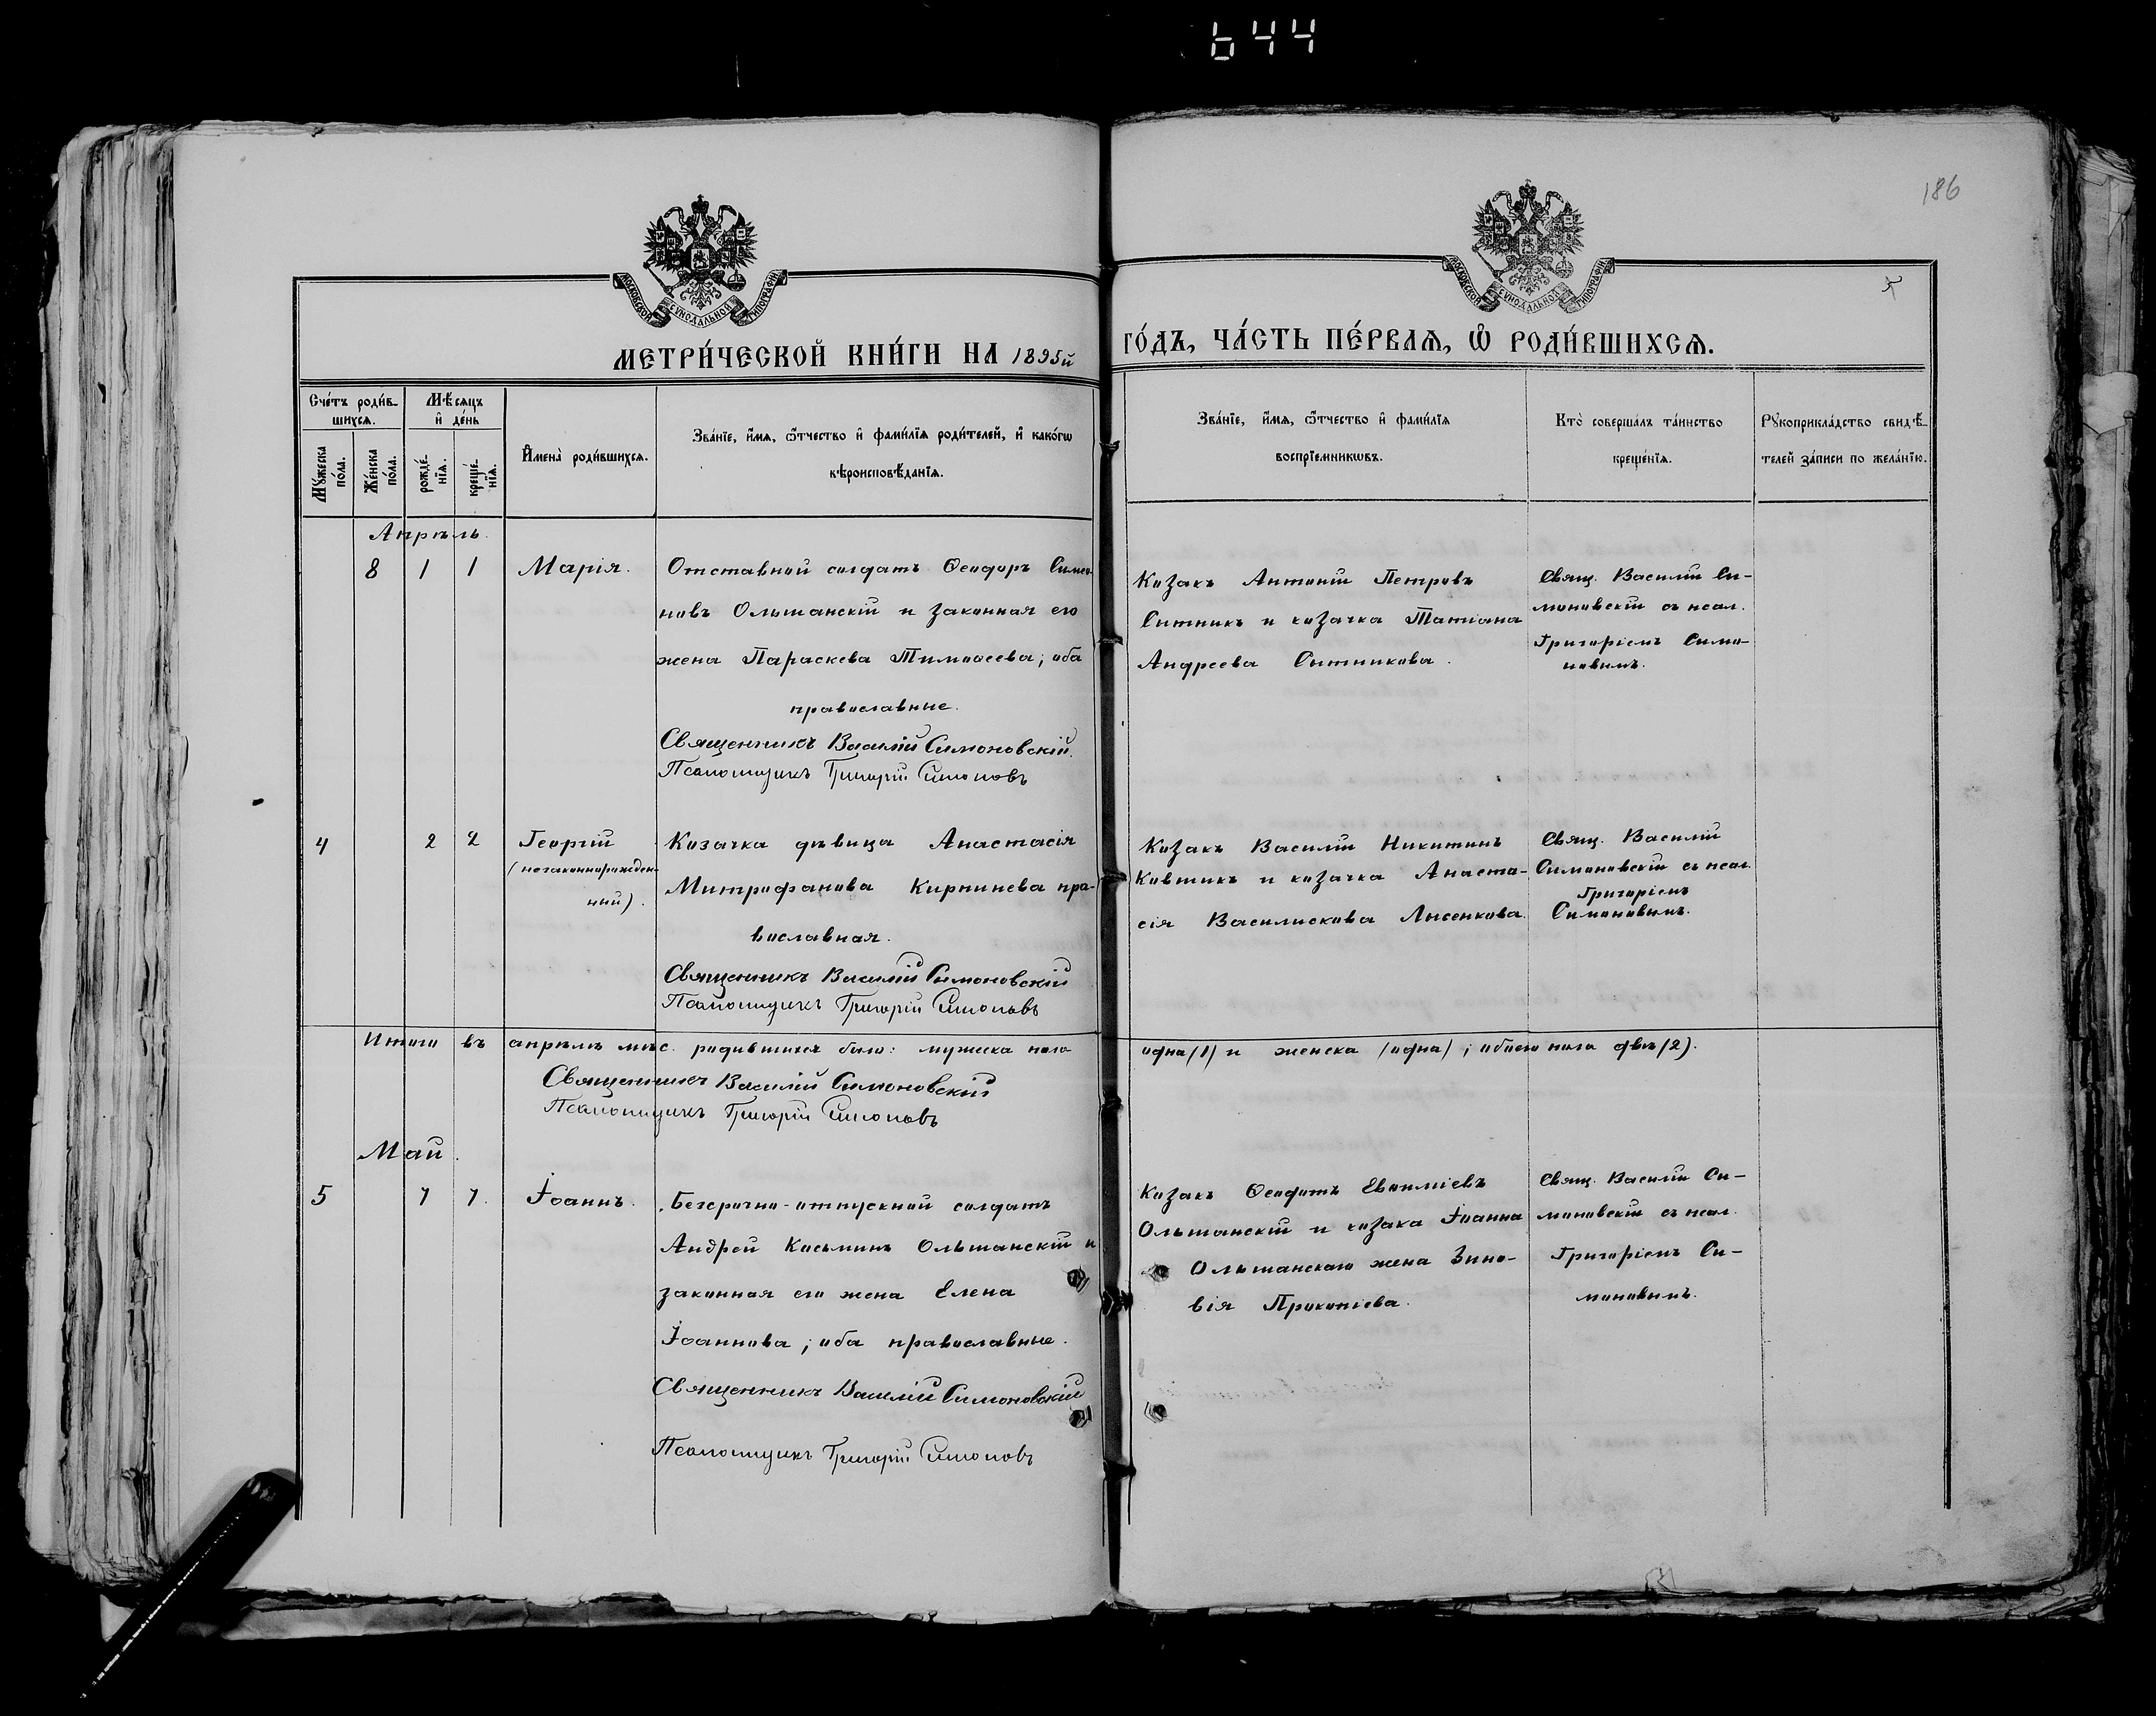 644
186
МОСКОВСКОЙ СУНОДАЛЬНОЙ ТИПОГРАФІИ
МОСКОВСКОЙ СУНОДАЛЬНОЙ ТИПОГРАФІИ
МЕТРИ́ЧЕСКОЙ КНИ́ГИ НА 1895й ГО́ДЪ, ЧА́СТЬ ПЕ́РВАѦ, Ѡ РОДИ́ВШИХСѦ.
Сче́тъ роди́в-
шихсѧ.
Мѣ́сяцъ
и҆ де́нь
Мꙋ́жеска по́ла.
Же́нска по́ла.
рожде́-нїѧ.
креще́-нїѧ.
И҆мена̀ роди́вшихсѧ.
Зва́нїе, и҆́мѧ, ѻ҆́тчество и҆ фами́лїѧ роди́телей, и҆ како́гѡ
вѣроисповѣ́данїѧ.
Зва́нїе, и҆́мѧ, ѻ҆́тчество и҆ фами́лїѧ
воспрїемникѡвъ.
Кто̀ соверша́лъ та́инство
креще́нїѧ.
Рꙋкоприкла́дство свидѣ́-
телей за́писи по жела́нїю.
Апрѣль
8 1 1 Марія.
Отставной солдатъ Ѳеодоръ Симо-
новъ Ольшанскій и законная его
жена Параскева Тимоѳеева; оба
православные.
Священникъ Василій Симоновскій
Псаломщикъ Григорій Симоновъ
Козакъ Антоній Петровъ
Ситникъ и козачка Татіана
Андреева Ситникова.
Свящ. Василій Си-
моновскій съ псал.
Григоріемъ Симо-
новымъ.
4 2 2 Георгій
(незаконнорожден-
ный).
Козачка дѣвица Анастасія
Митрофанова Кирпинева пра-
вославная.
Священникъ Василій Симоновскій
Псаломщикъ Григорій Симоновъ
Козакъ Василій Никитинъ
Ковтикъ и козачка Анаста-
сія Василискова Лысенкова.
Свящ. Василій
Симоновскій съ псал.
Григоріемъ
Симоновымъ.
Итого въ апрѣлѣ мѣс. родившихся было: мужеска пола одна /1/ и женска /одна/; обоего пола двѣ /2).
Священникъ Василій Симоновскій
Псаломщикъ Григорій Симоновъ
Май.
5 7 7. Іоаннъ.
Безсрочно-отпускной солдатъ
Андрей Косьминъ Ольшанскій и
законная его жена Елена
Іоаннова; оба православные.
Священникъ Василій Симоновскій
Псаломщикъ Григорій Симоновъ
Козакъ Ѳеодотъ Евѳиміевъ
Ольшанскій и козака Іоанна
Ольшанскаго жена Зино-
вія Прокопіева.
Свящ. Василій Си-
моновскій съ псал.
Григоріемъ Си-
моновымъ.